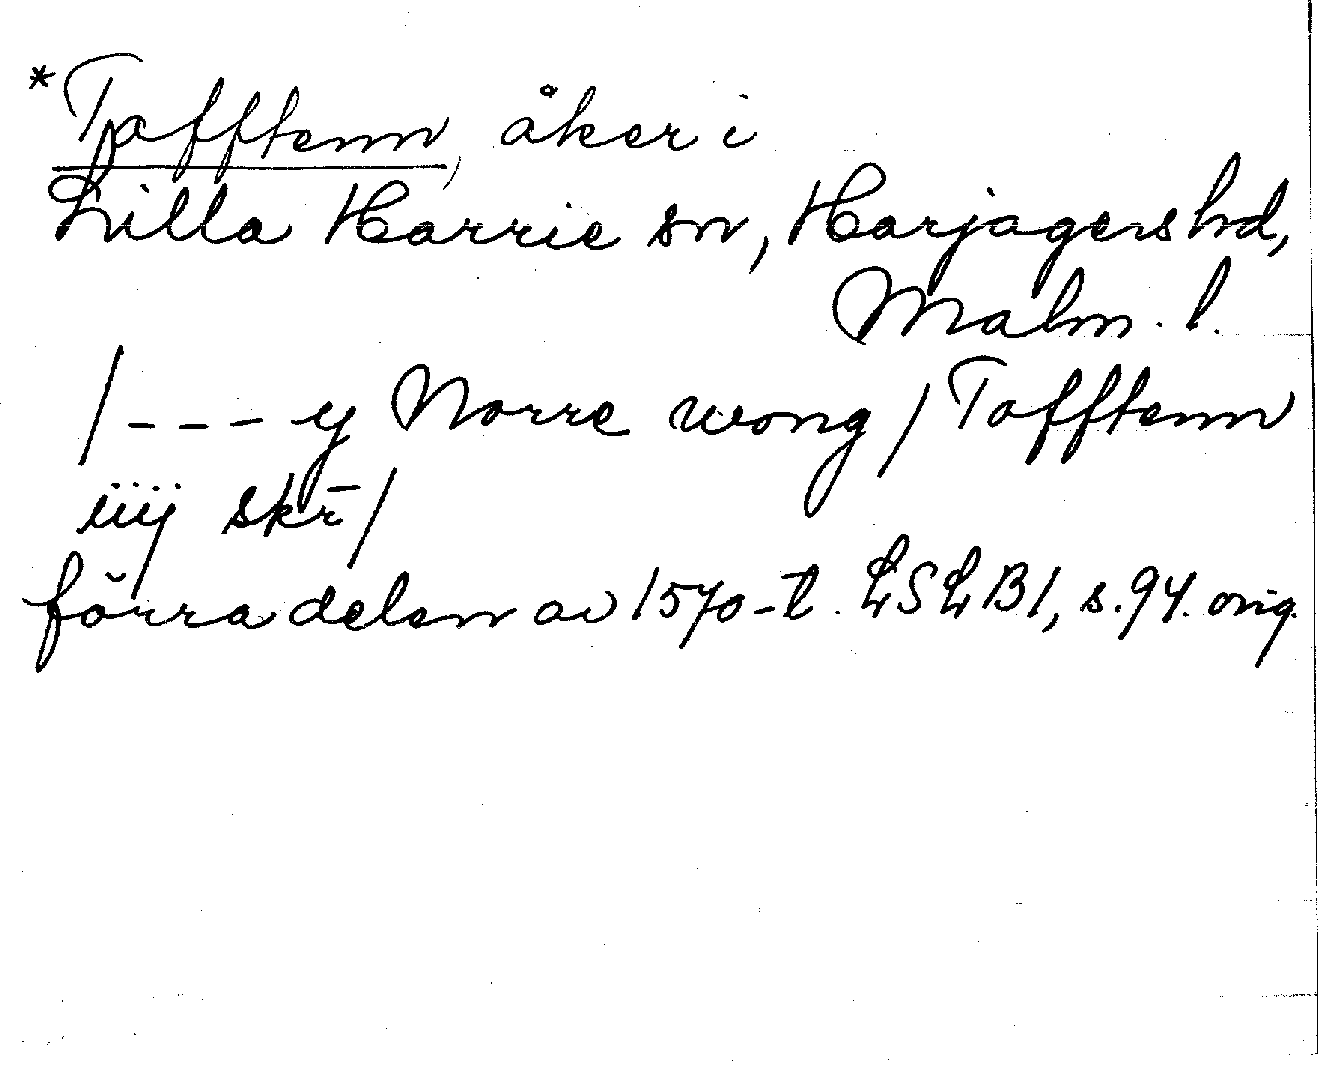 *Tofftenn, åker i
Lilla Harrie sn, Harjagers hd,
Malm. l.
/--- y Norre wong / Tofftenn
iiij skr̄ /
förra delen av 1570-t. LSLB1, s. 94. orig.